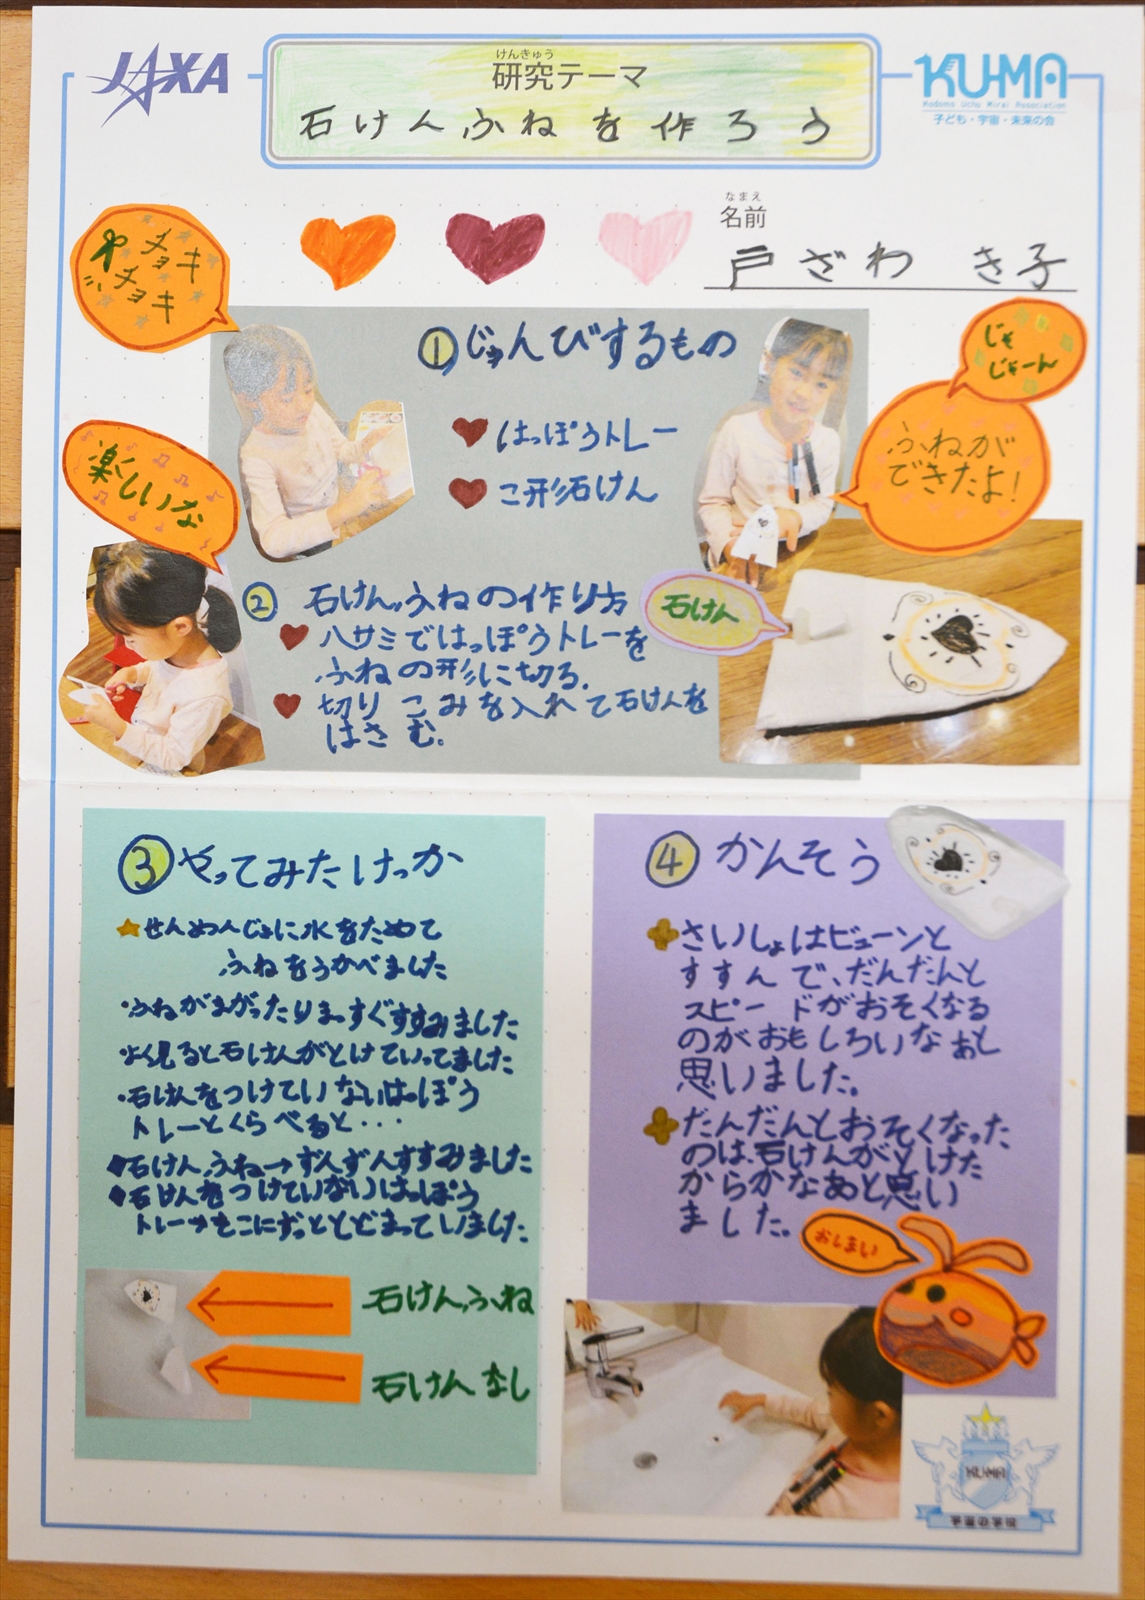 JAXA
けんきゅう
研究テーマ
石けんふねを作ろう
KUMA
Kodomo Uchu Mirai Association
子ども・宇宙・未来の会
なまえ
名前
戸ざわ き子
チョキ
チョキ
楽しいな
①じゅんびするもの
はっぽうトレー
こ形石けん
じゃ
じゃーん
ふねが
できたよ！
② 石けんふねの作り方
ハサミではっぽうトレーを
ふねの形に切る。
切りこみを入れて石けんを
はさむ。
石けん
③やってみたけっか
せんめんじょに水をためて
ふねをうかべました
・ふねがまがったりまっすぐすすみました
・よく見ると石けんがとけていってました
・石けんをつけていないはっぽう
トレーとくらべると・・・
◆石けんふね→ずんずんすすみました
◆石けんをつけていないはっぽう
トレー→そこにずっととどまっていました
石けんふね
石けんなし
④ かんそう
さいしょはビューンと
すすんで、だんだんと
スピードがおそくなる
のがおもしろいなぁと
思いました。
だんだんとおそくなった
のは、石けんがとけた
からかなあと思い
ました。
おしまい
KUMA
宇宙の学校